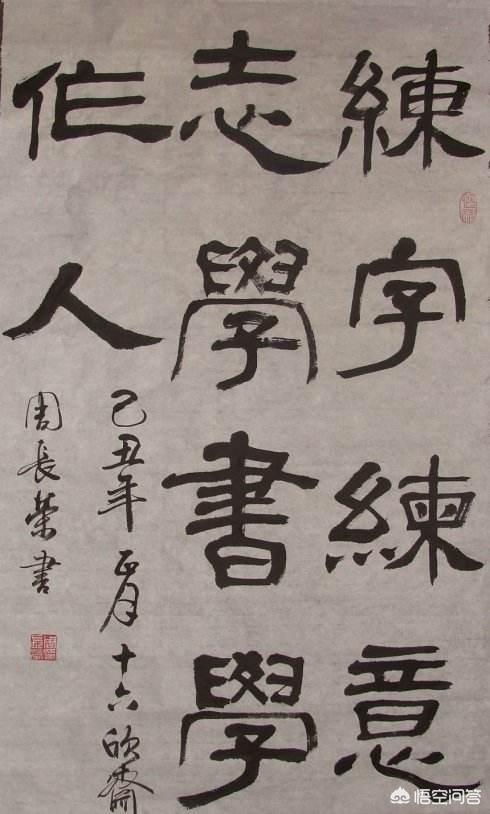 練字練意
志學書學
作人
己丑年正月十六欣齋
周長榮書
悟空问答